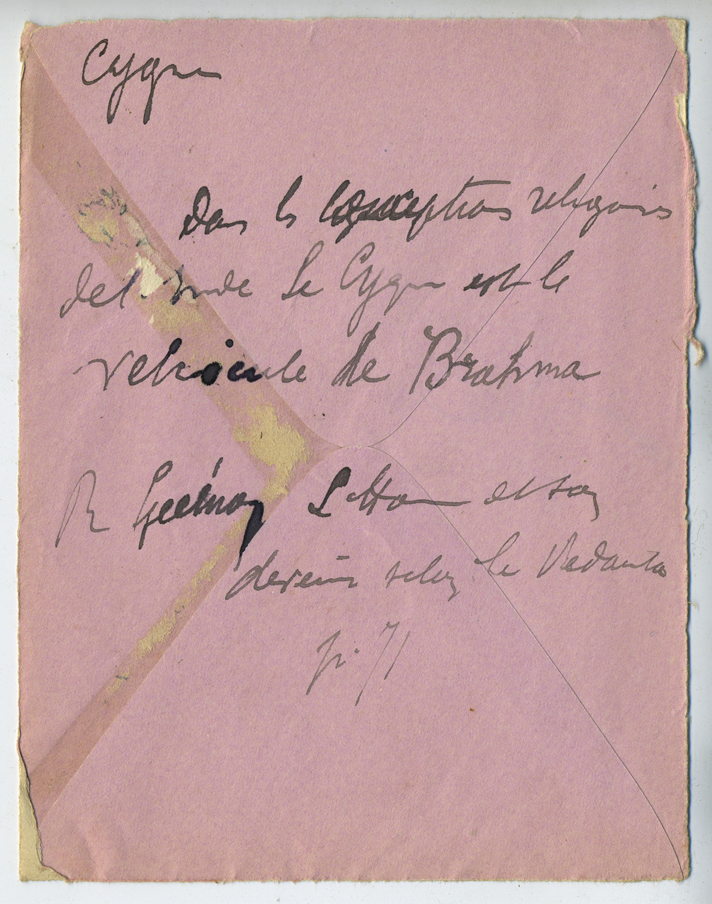 Cygne
Dans les conceptions religieuses
de l'Inde le Cygne est le
véhicule de Brahma
R Guénon L'Homme et son
devenir selon le Vedanta
p. 71